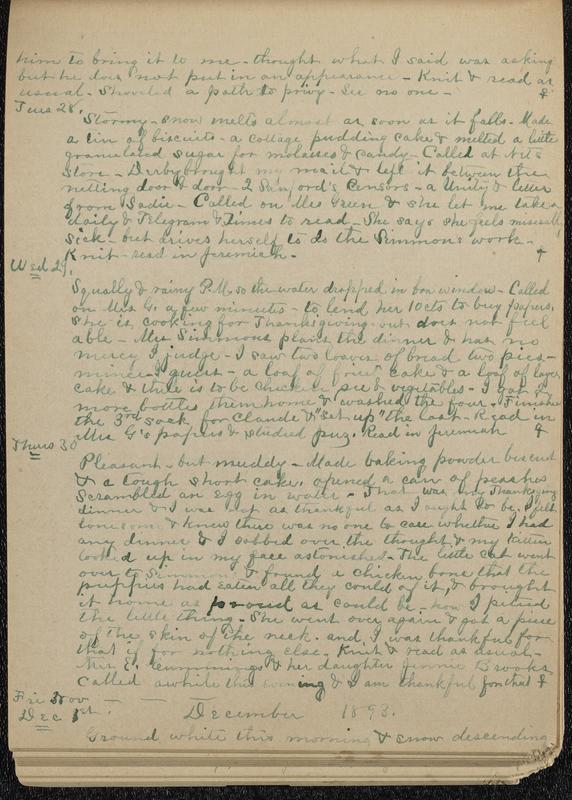 him to bring it to me - thought what I said was asking
but he does not put in an appearance - Knit & read as
usual - Shoveled a path to privy - See no one -
Tues 28,
Stormy - snow melts almost as soon as it falls - Made
a tin of biscuits - a cottage pudding cake & melted a little
granulated sugar for molasses & candy - Called at Nit's
Store - Derby brought my mail & left it between the
netting door & door - 2 Sanford's Censors - a Unity & letter
from Sadie - Called on Mrs Green & she let me take a
daily & Telegram & Times to read - She says she feels miserably
sick - but drives herself to do the Simmons's work -
Knit - read in Jeremiah -
Wed 29,
Squally & rainy P.M. so the water dropped in bow window - Called
on Mrs G. a few minutes - to lend her 10cts to buy papers,
She is cooking for Thanksgiving - but does not feel
able - Mrs Simmons plans the dinner & has no
mercy I judge - I saw two loaves of bread two pies -
mince I guess - a loaf of fruit cake & a loaf of layer
cake & there is to be chicken pie & vegetables - I got 2
more bottles them home & washed the four - Finished
the 3rd sock for Claude & "set up" the last - Read in
Mrs G's papers & studied puz. Read in Jeremiah &
Thurs 30
Pleasant - but muddy - Made baking powder biscuit
& a tough short cake, opened a can of peaches
Scrambled an egg in water - That was my Thanksgiving
dinner & I was not as thankful as I ought to be, I felt
lonesome & knew there was no one to care whether I had
any dinner & I sobbed over the thought & my kitten
looked up in my face astonished - The little cat went
over to Simmons & found a chicken bone that the
puppies had eaten all they could of it, & brought
it home as proud as could be - how I pitied
the little thing - She went over again & got a piece
of the skin of the neck. and I was thankful for
that if for nothing else - Knit & read as usual -
Mrs E. Cummings & her daughter Jennie Brooks
Called awhile this evening & I am thankful for that &
Fri Nov
Dec 1st.
December 1893.
Ground white this morning & snow descending